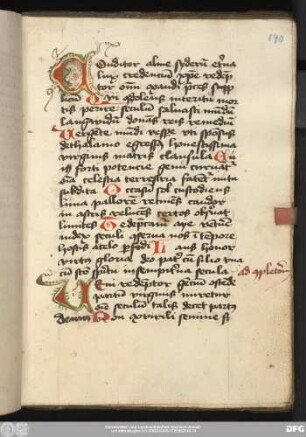 190
Conditor alme syderum eterna
lux credencium xpe redemp
tor omnium exaudi preces supp
licum Qui condolens interitu mor
tis perire seculum saluasti mundum
languidum donans reis remedium
Vergente mundi vespere vti sponsus
de thalamo egressus honestissima
virginis matris clausula Cu
ius forti potencie genu curuantur
omnia celestia terrestria fatentur nutu
subdita Occasum sol custodiens
luna pallorem retinens candor
in astris relucens certos obseruat
limites Te deprecamur agie venture
iudex seculi conserua nos in tempore
hostis a telo perfidi Laus honor
virtus gloria deo patri cum filio vna
cum sancto spiritu in sempiterna secula ad completorium
Veni redemptor gencium ostende
partum virginis miretur
omne seculum talis decet partus
deum Non ex virili semine sed